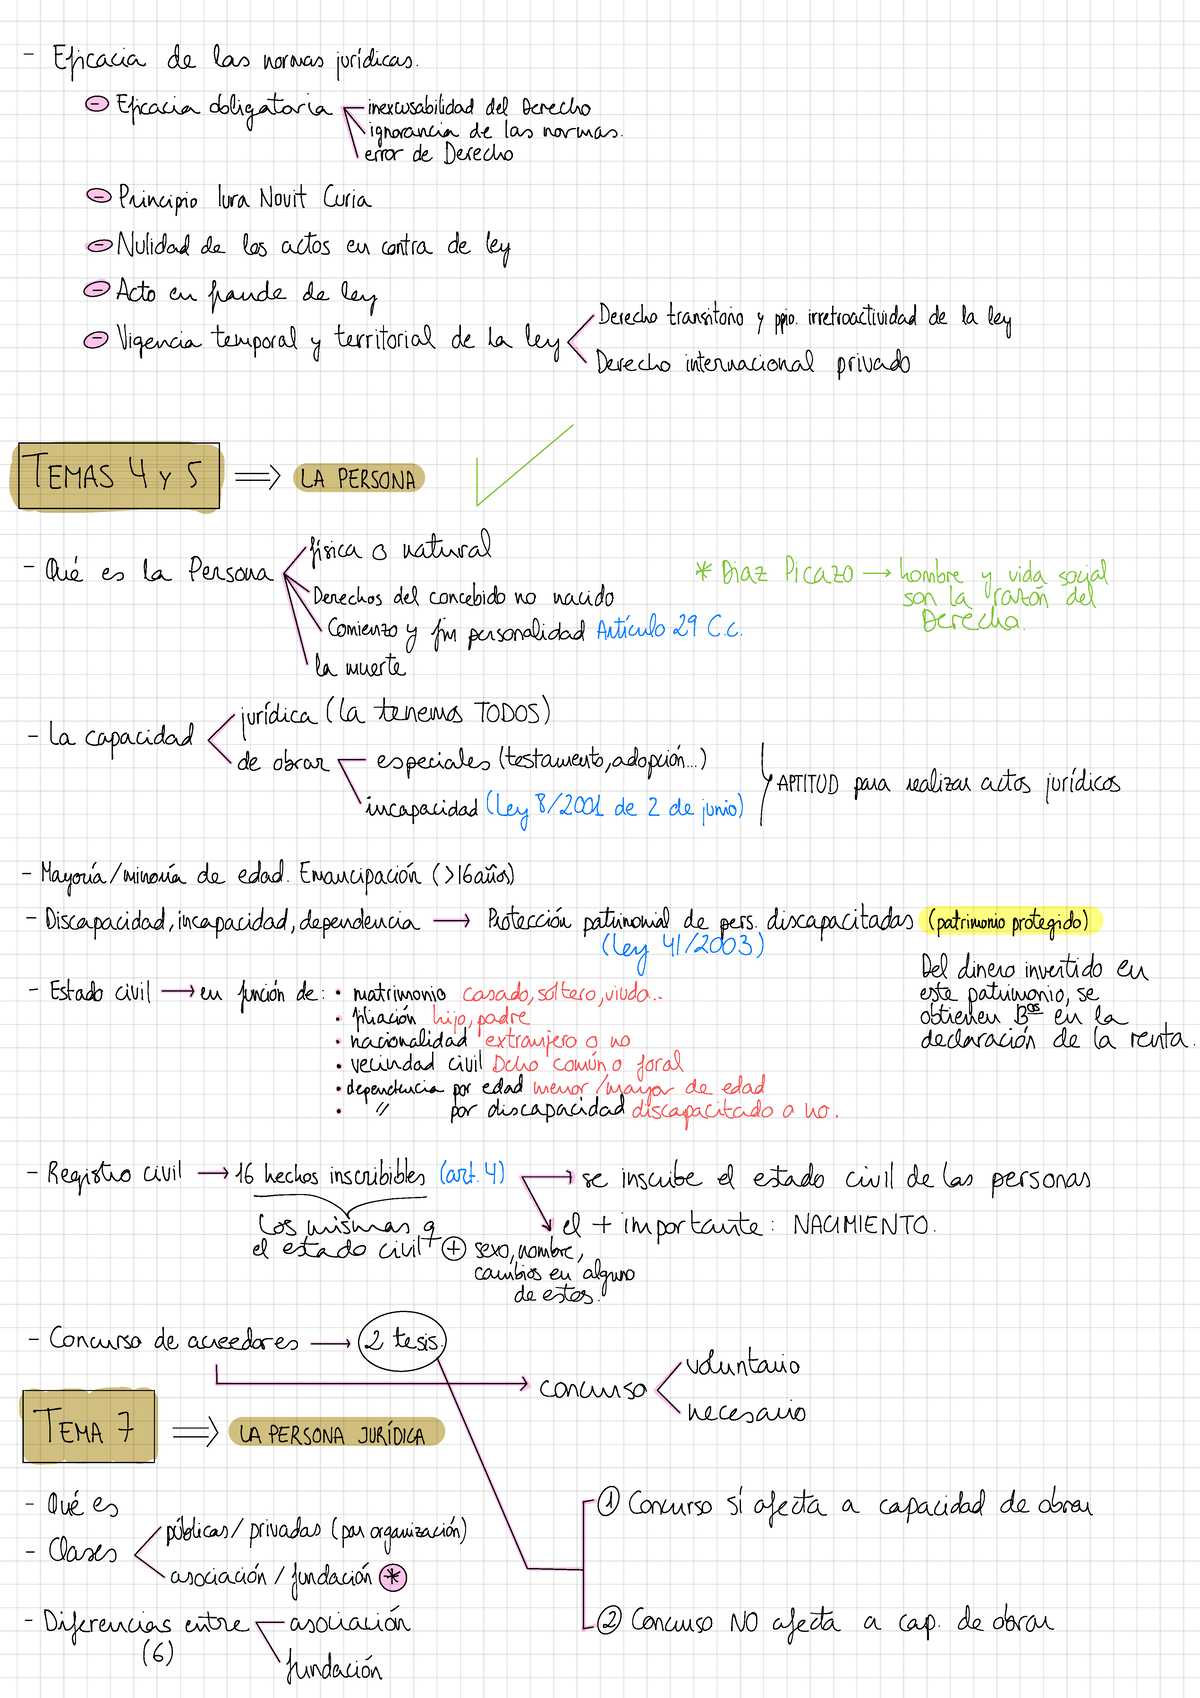 - Eficacia de las normas jurídicas.
- Eficacia obligatoria
inexcusabilidad del Derecho
ignorancia de las normas.
error de Derecho
- Principio Iura Novit Curia
- Nulidad de los actos en contra de ley
- Acto en fraude de ley
- Vigencia temporal y territorial de la ley
Derecho transitorio y ppio. irretroactividad de la ley
Derecho internacional privado
TEMAS 4 Y 5 ⇒ LA PERSONA
- Qué es la Persona
física o natural
Derechos del concebido no nacido
Comienzo y fin personalidad Artículo 29 C.c.
la muerte
* Diaz Picazo → hombre y vida social
son la razón del
Derecho.
- La capacidad
jurídica (la tenemos TODOS)
de obrar
especiales (testamento, adopción...)
incapacidad (Ley 8/2001 de 2 de junio)
APTITUD para realizar actos jurídicos
- Mayoría/minoría de edad. Emancipación (>16 años)
- Discapacidad, incapacidad, dependencia → Protección patrimonial de pers. discapacitadas (patrimonio protegido)
(Ley 41/2003)
Del dinero invertido en
este patrimonio, se
obtienen Bos en la
declaración de la renta.
- Estado civil → en función de: • matrimonio casado, soltero, viuda..
• filiación hijo, padre
• nacionalidad extranjero o no
• vecindad civil Dcho común o foral
• dependencia por edad menor/mayor de edad
• " por discapacidad discapacitado o no.
- Registro civil → 16 hechos inscribibles (art. 4)
→ se inscribe el estado civil de las personas
el + importante: NACIMIENTO.
Los mismas q
el estado civil + sexo, nombre,
cambios en alguno
de estos.
- Concurso de acreedores → 2 tesis.
concurso
voluntario
necesario
TEMA 7 ⇒ LA PERSONA JURÍDICA
- Qué es
- Clases
públicas/privadas (por organización)
asociación/fundación *
① Concurso sí afecta a capacidad de obrar
② Concurso NO afecta a cap. de obrar
- Diferencias entre
(6)
asociación
fundación